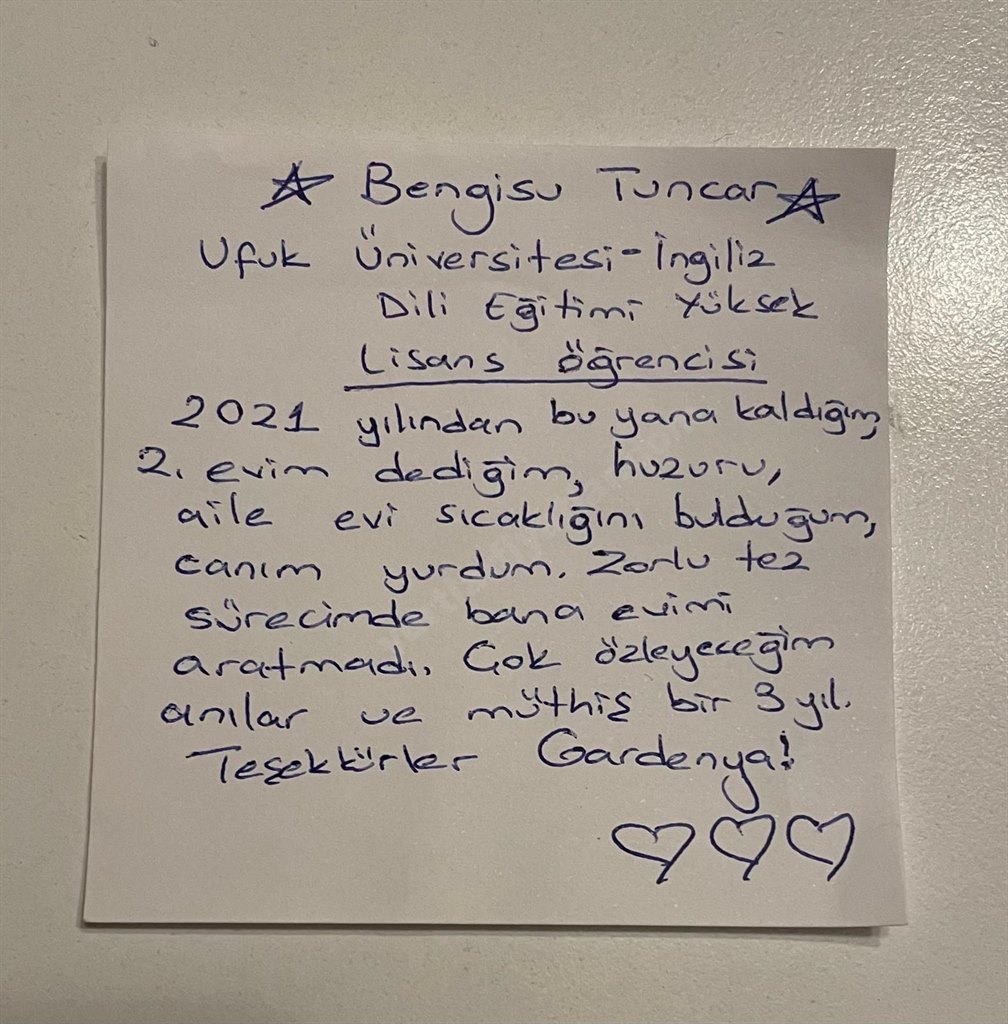 Bengisu Tuncar
Ufuk Üniversitesi-İngiliz
Dili Eğitimi Yüksek
Lisans Öğrencisi
2021 yılından bu yana kaldığım,
2. evim dediğim, huzuru,
aile evi sıcaklığını bulduğum,
canım yurdum. Zorlu tez
sürecimde bana evimi
aratmadı. Çok özleyeceğim
anılar ve müthiş bir 3 yıl.
Teşekkürler Gardenya!